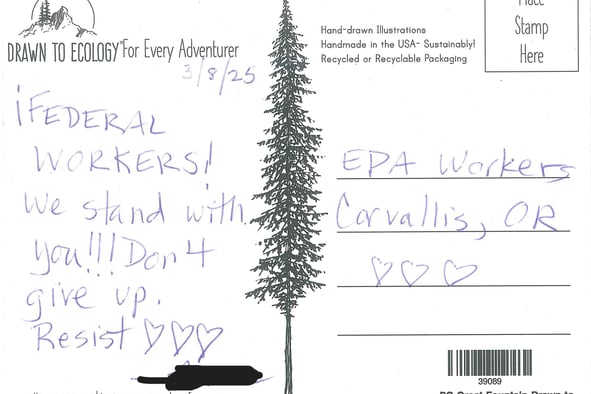 DRAWN TO ECOLOGY™ For Every Adventurer
3/8/25
¡FEDERAL
WORKERS!
We stand with
you!!! Don't
give up.
Resist ♡♡♡
Hand-drawn Illustrations
Handmade in the USA- Sustainably!
Recycled or Recyclable Packaging
Place
Stamp
Here
EPA Workers
Corvallis, OR
♡ ♡ ♡
39089